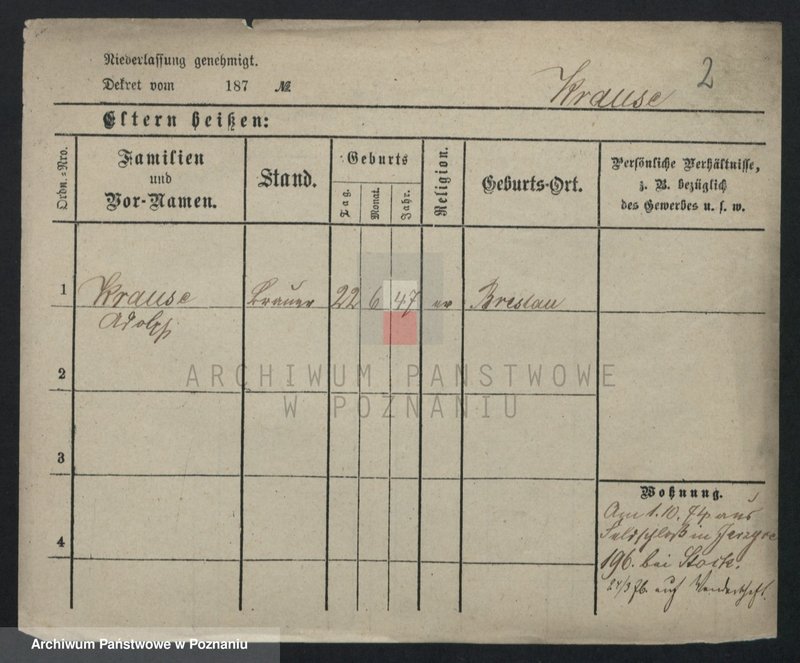 Niederlassung genehmigt.
2
Dekret vom 187 №
Krause
Eltern heißen:
Ordn.-Nro.
Familien
und
Vor-Namen.
Stand.
Geburts
Tag.
Monat.
Jahr.
Religion.
Geburts-Ort.
Persönliche Verhältnisse,
z. B. bezüglich
des Gewerbes u. s. w.
1 Krause Brauer 22 6 47 ev Breslau
Adolph
ARCHIWUM PAŃSTWOWE
W POZNANIU
2
3
4
Wohnung.
Am 1.10.74 aus
Feldschloß in
196. bei Stock.
24/3 76. auf
Archiwum Państwowe w Poznaniu